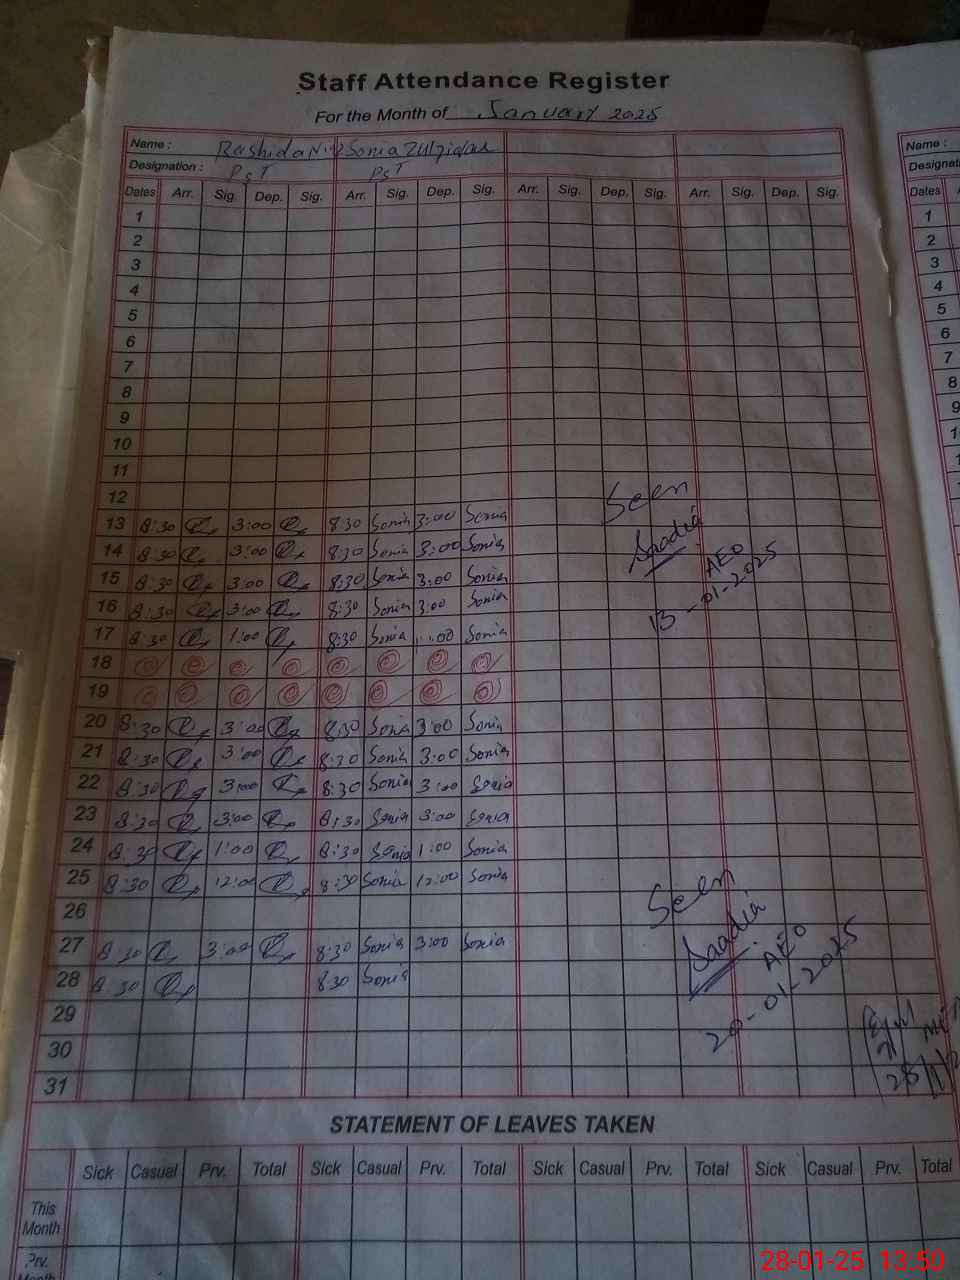 Staff Attendance Register
For the Month of January 2025
Name : Rashida Sonia Zulfiqar Name
Designation : PST PST Designat
Dates Arr. Sig. Dep. Sig. Arr. Sig. Dep. Sig. Arr. Sig. Dep. Sig. Arr. Sig. Dep. Sig. Dates
1 1
2 2
3 3
4 4
5 5
6 6
7 7
8 8
9
10
11
12
Seen
13 8:30 3:00 8:30 Sonia 3:00 Sonia
Saadia
14 8:30 3:00 8:30 Sonia 3:00 Sonia
AEO
15 8:30 3:00 8:30 Sonia 3:00 Sonia
16 8:30 3:00 8:30 Sonia 3:00 Sonia
13-01-2025
17 8:30 1:00 8:30 Sonia 1:00 Sonia
18
19
20 8:30 3:00 8:30 Sonia 3:00 Sonia
21 8:30 3:00 8:30 Sonia 3:00 Sonia
22 8:30 3:00 8:30 Sonia 3:00 Sonia
23 8:30 3:00 8:30 Sonia 3:00 Sonia
24 8:30 1:00 8:30 Sonia 1:00 Sonia
25 8:30 12:00 8:30 Sonia 12:00 Sonia
Seen
26
27 8:30 3:00 8:30 Sonia 3:00 Sonia
Saadia
AEO
28 8:30 8:30 Sonia
20-01-2025
29
30
31
STATEMENT OF LEAVES TAKEN
Sick Casual Prv. Total Sick Casual Prv. Total Sick Casual Prv. Total Sick Casual Prv. Total
This Month
Prv. Month
28-01-25 13:50